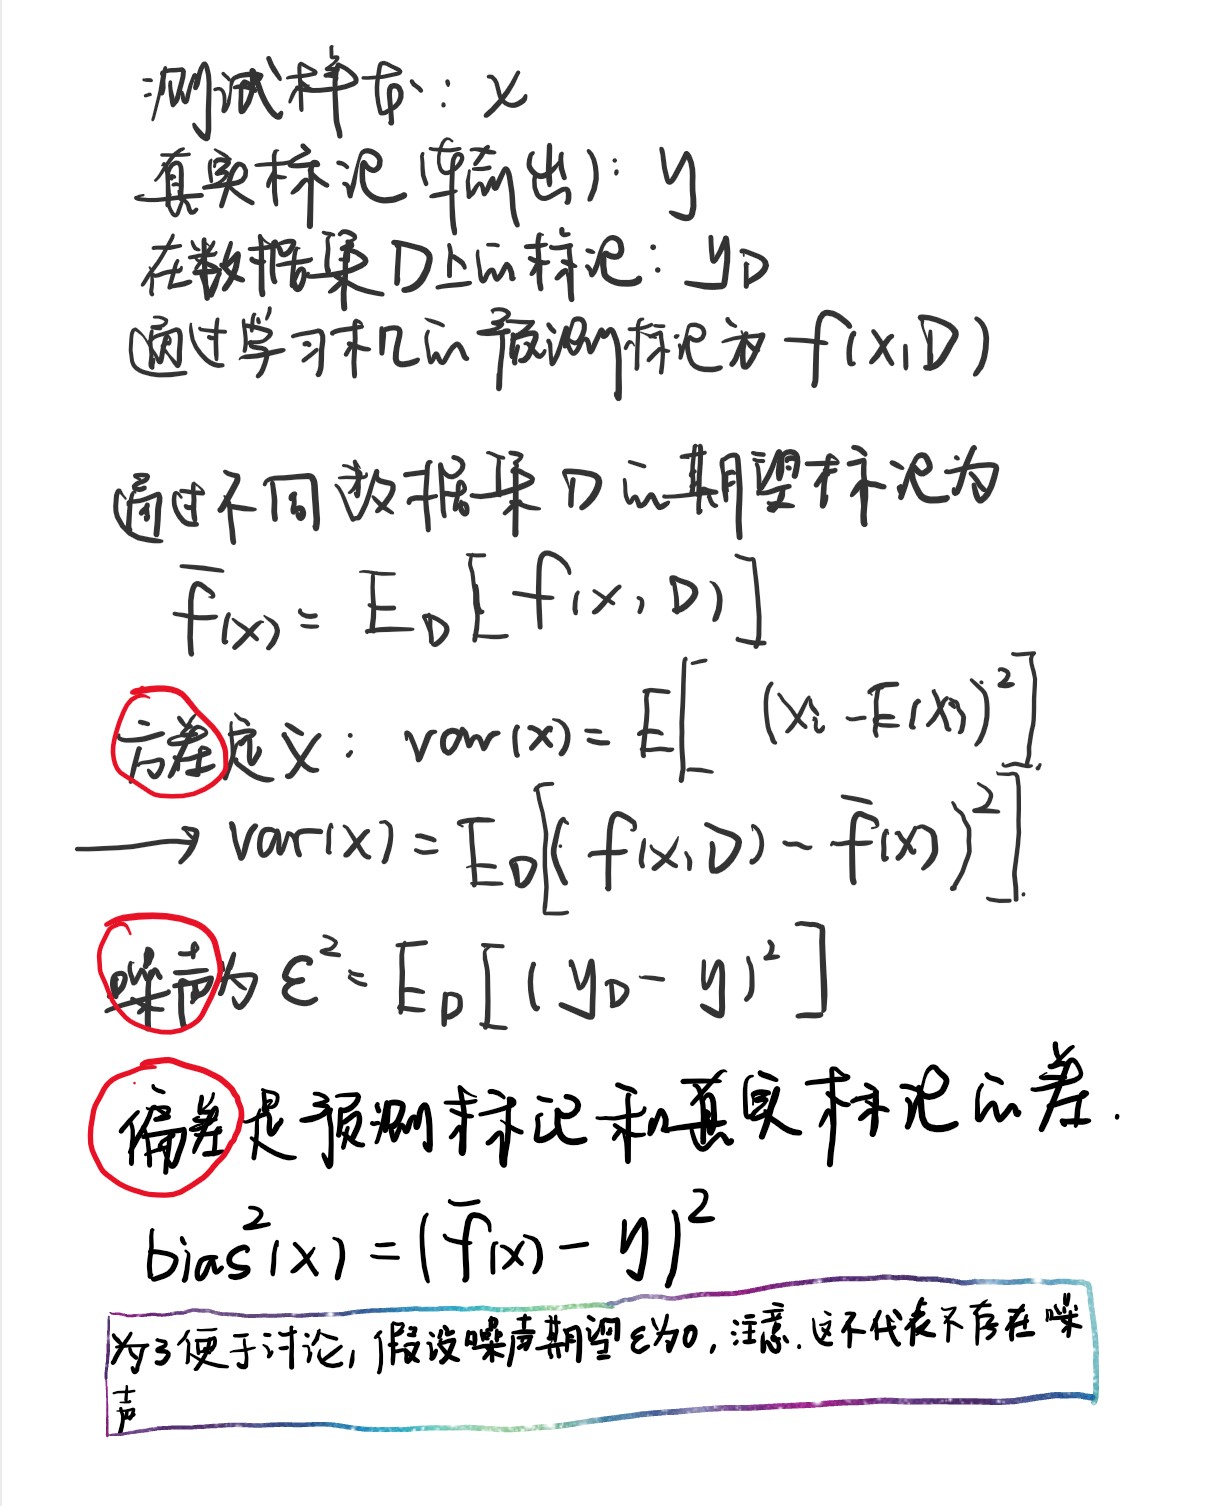 测试样本: x
真实标记(输出): y
在数据集D上的标记: y_D
通过学习机的预测标记为 f(x,D)
通过不同数据集D的期望标记为
f̄(x) = E_D[f(x,D)]
方差定义: var(x) = E[(x_i - E(x))²].
→ var(x) = E_D[(f(x,D) - f̄(x))²].
噪声为 ε² = E_D[(y_D - y)²]
偏差是预测标记和真实标记的差.
bias²(x) = (f̄(x) - y)²
为了便于讨论,假设噪声期望ε为0,注意.这不代表不存在噪
声